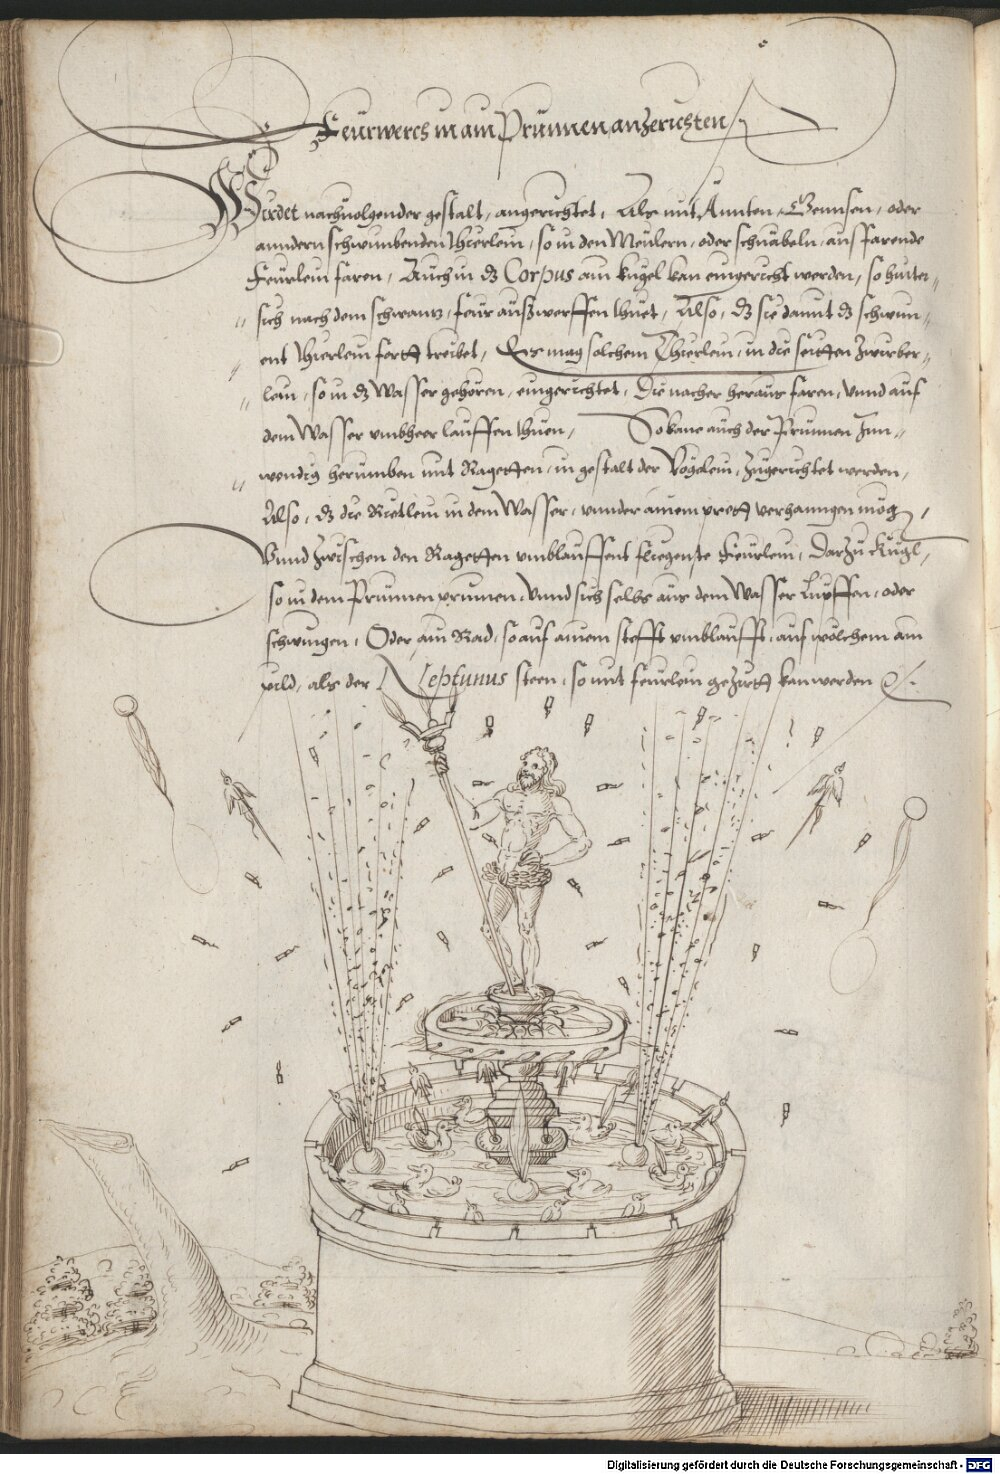 Feurwerch in ain Prunnen anzerichten
Wirdet nachuolgender gestalt, angerichtet, Als mit Annten, Gennsen, oder
anndern schwimbenden thierlein, so in den Meülern, oder schnäbeln, ausfarende
Feürlein faren, Auch in dz Corpus ain kugel kan eingericht werden, so hinter„
„ sich nach dem schwantz, feür außwerffen thuet, Also, dz sie damit dz schwim„
„ ent thierlein fortt treibet, Es mag solchem Thierlein, in die seitten Zwirber„
„ lein, so in dz Wasser gehören, eingerichtet, Die nacher heraus faren, Vnnd auf
dem Wasser vmbheer lauffen thuen, So kane auch der Prunnen Inn„
„ wendig herumben mit Ragetten, in gestalt der Vögelein, zugerichtet werden,
Also, dz die Rietlein in dem Wasser, vnnder ainem prett verhanngen mög,
Vnnd zwischen den Ragetten vmblauffent fliegente Feürlein, Darzu Kugl,
so in dem Prunnen prinnen, Vnnd sich selbs aus dem Wasser Lupffen, oder
schwingen, Oder, ain Rad, so auf ainem stefft vmblaufft, auf wölchem ain
pild, als der Neptunus steen, so mit feürlein geziertt kan werden
Digitalisierung gefördert durch die Deutsche Forschungsgemeinschaft - DFG